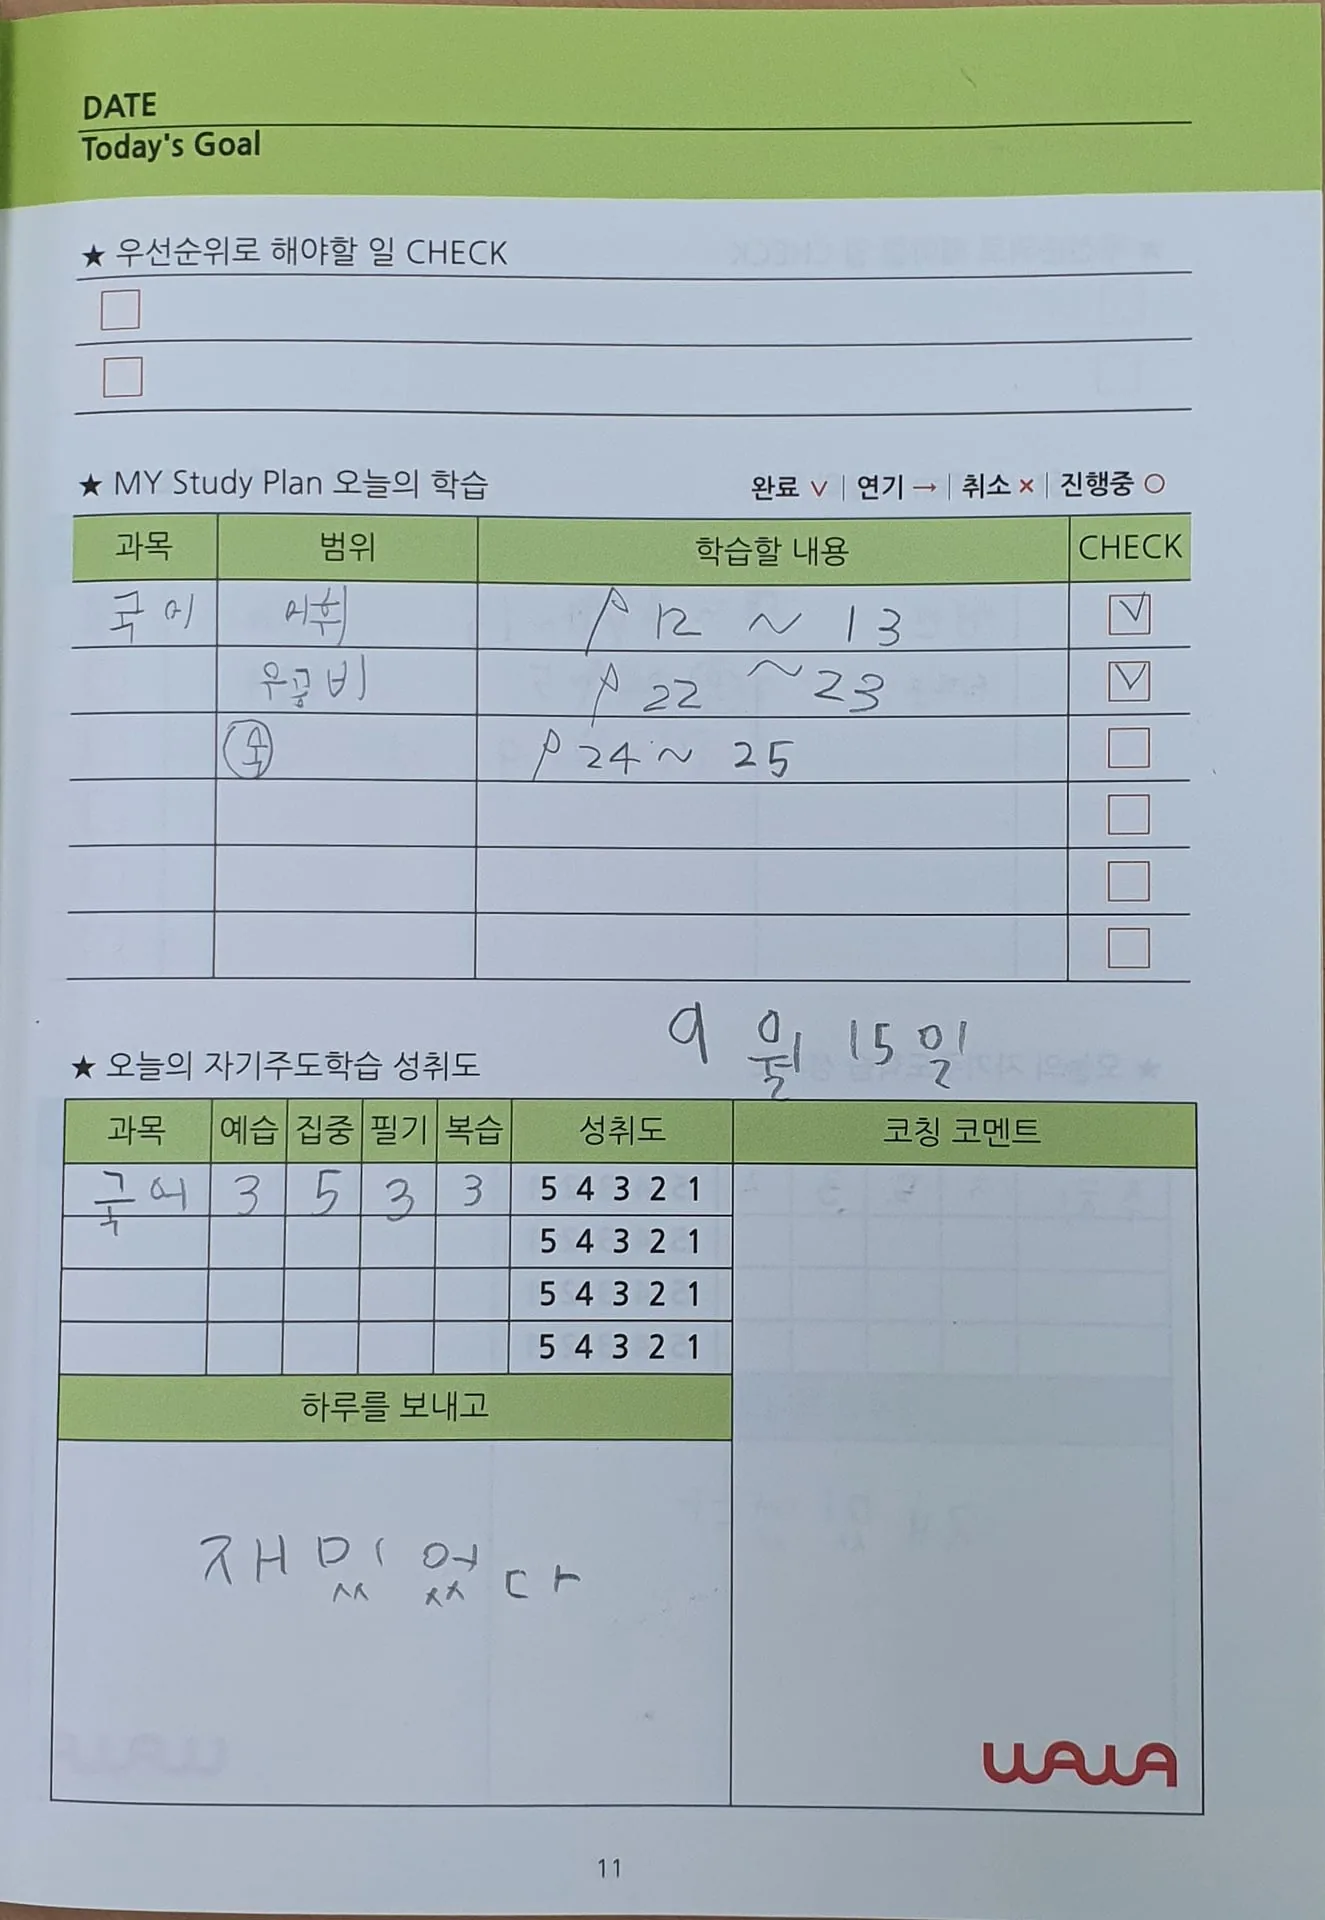 DATE
Today's Goal
★ 우선순위로 해야할 일 CHECK
★ MY Study Plan 오늘의 학습 완료 ∨ | 연기 → | 취소 × | 진행중 ○
과목 범위 학습할 내용 CHECK
국어 어휘 p 12 ~ 13 ∨
우공비 p 22 ~ 23 ∨
숙 p 24 ~ 25
9월 15일
★ 오늘의 자기주도학습 성취도
과목 예습 집중 필기 복습 성취도 코칭 코멘트
국어 3 5 3 3 5 4 3 2 1
5 4 3 2 1
5 4 3 2 1
5 4 3 2 1
하루를 보내고
재밌었다
WAWA
11